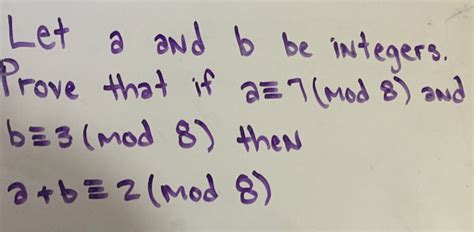 Let a and b be integers.
Prove that if a≡7(mod 8) and
b≡3(mod 8) then
a+b≡2(mod 8)